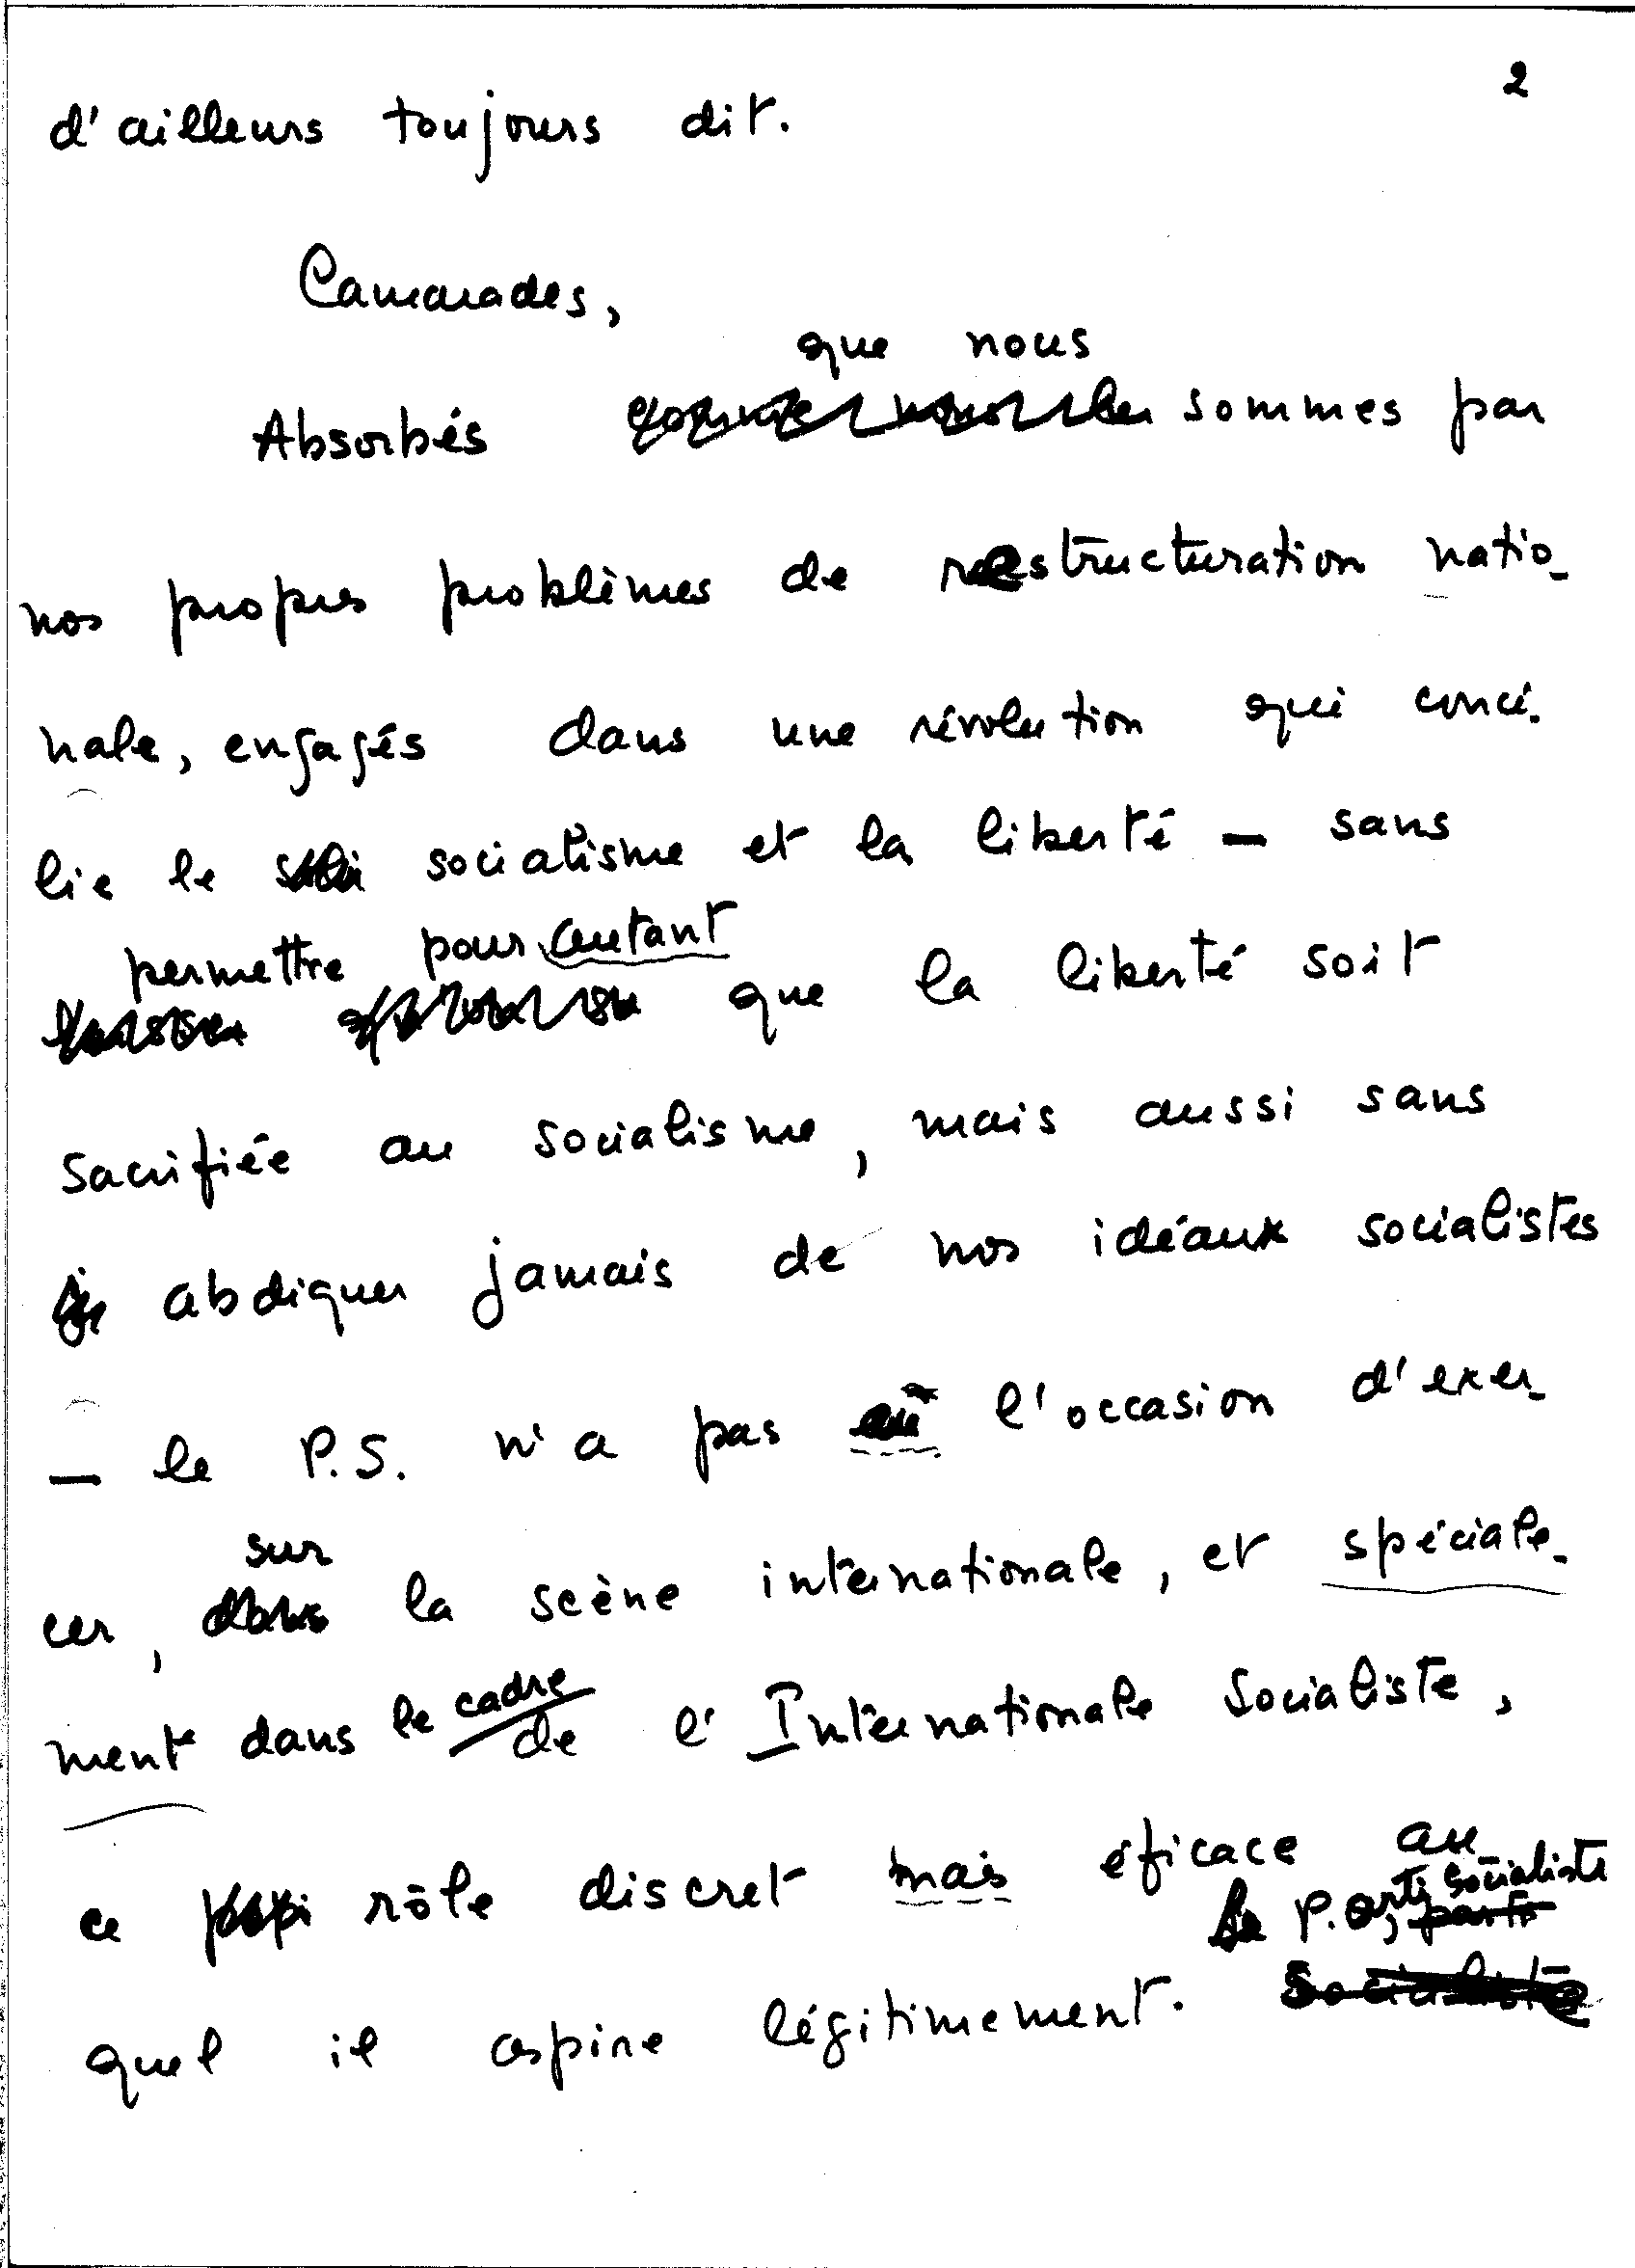 2
d'ailleurs toujours dit.
Camarades,
que nous
Absorbés sommes par
nos propres problèmes de restructuration natio-
nale, engagés dans une révolution qui conci-
lie le socialisme et la liberté – sans
permettre pour autant
que la liberté soit
sacrifiée au socialisme, mais aussi sans
abdiquer jamais de nos idéaux socialistes
– le P.S. n'a pas eu l'occasion d'exer-
sur
cer, dans la scène internationale, et spéciale-
ment dans le cadre de l'Internationale Socialiste,
ce rôle discret mais éficace au
quel il aspire légitimement. Le P. arti socialiste
parti
Socialiste